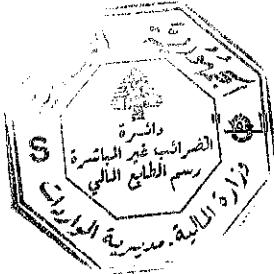 دائرة
الضرائب غير المباشرة
رسم الطابع المالي
S
وزارة المالية - مديرية الواردات